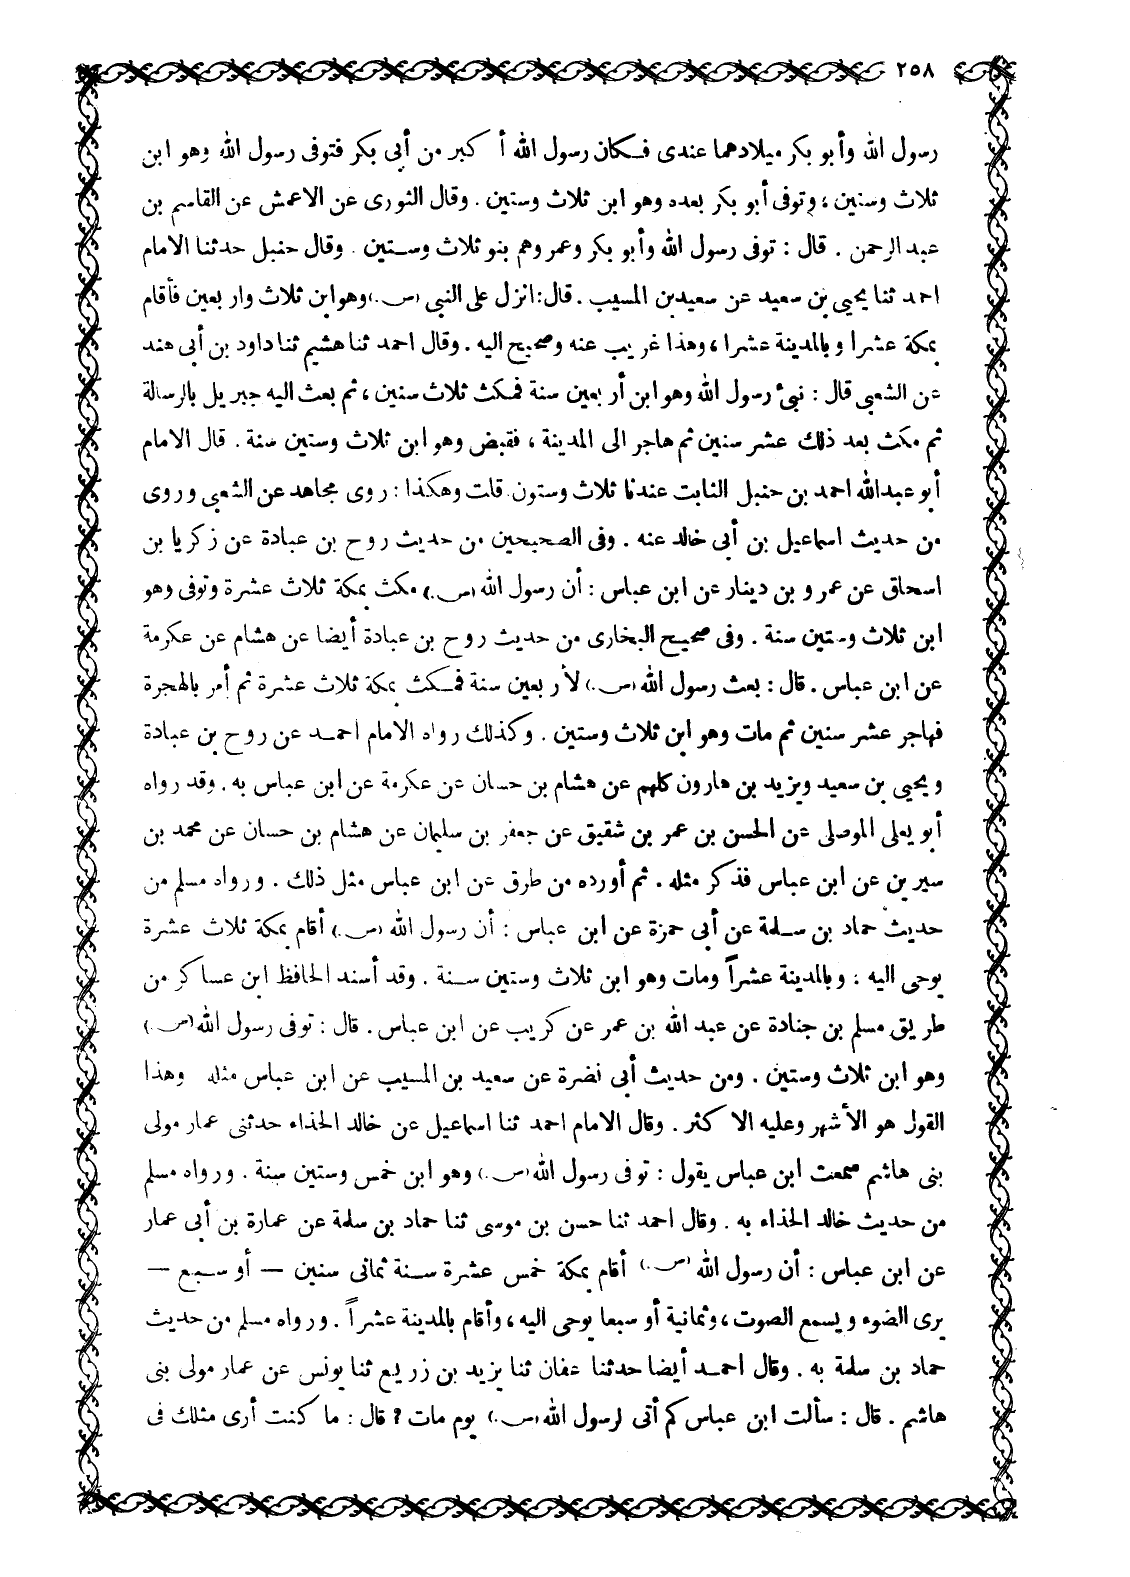 ٢٥٨
رسول الله وأبو بكر ميلادهما عندى فكان رسول الله أكبر من أبى بكر فتوفى رسول الله وهو ابن
ثلاث وستين ، وتوفى أبو بكر بعده وهو ابن ثلاث وستين . وقال الثورى عن الاعمش عن القاسم بن
عبد الرحمن . قال : توفى رسول الله وأبو بكر وعمر وهم بنو ثلاث وستين . وقال حنبل حدثنا الامام
احمد ثنا يحيى بن سعيد عن سعيد بن المسيب . قال : انزل على النبى (ص.) وهو ابن ثلاث واربعين فأقام
بمكة عشرا وبالمدينة عشرا ، وهذا غريب عنه وصحيح اليه . وقال احمد ثنا هشيم ثنا داود بن أبى هند
عن الشعبى قال : نبئ رسول الله وهو ابن أربعين سنة فمكث ثلاث سنين ، ثم بعث اليه جبريل بالرسالة
ثم مكث بعد ذلك عشر سنين ثم هاجر الى المدينة ، فقبض وهو ابن ثلاث وستين سنة . قال الامام
أبو عبدالله احمد بن حنبل الثابت عندنا ثلاث وستون . قلت وهكذا : روى مجاهد عن الشعبى وروى
من حديث اسماعيل بن أبى خالد عنه . وفى الصحيحين من حديث روح بن عبادة عن زكريا بن
اسحاق عن عمرو بن دينار عن ابن عباس : أن رسول الله (ص.) مكث بمكة ثلاث عشرة وتوفى وهو
ابن ثلاث وستين سنة . وفى صحيح البخارى من حديث روح بن عبادة أيضا عن هشام عن عكرمة
عن ابن عباس . قال : بعث رسول الله (ص.) لأربعين سنة فمكث بمكة ثلاث عشرة ثم أمر بالهجرة
فهاجر عشر سنين ثم مات وهو ابن ثلاث وستين . وكذلك رواه الامام احمد عن روح بن عبادة
ويحيى بن سعيد ويزيد بن هارون كلهم عن هشام بن حسان عن عكرمة عن ابن عباس به . وقد رواه
أبو يعلى الموصلى عن الحسن بن عمر بن شقيق عن جعفر بن سليمان عن هشام بن حسان عن محمد بن
سيرين عن ابن عباس فذكر مثله . ثم أورده من طرق عن ابن عباس مثل ذلك . ورواه مسلم من
حديث حماد بن سلمة عن أبى حمزة عن ابن عباس : أن رسول الله (ص.) أقام بمكة ثلاث عشرة
يوحى اليه ، وبالمدينة عشراً ومات وهو ابن ثلاث وستين سنة . وقد أسند الحافظ ابن عساكر من
طريق مسلم بن جنادة عن عبد الله بن عمر عن كريب عن ابن عباس . قال : توفى رسول الله (ص.)
وهو ابن ثلاث وستين . ومن حديث أبى نضرة عن سعيد بن المسيب عن ابن عباس مثله وهذا
القول هو الأشهر وعليه الاكثر . وقال الامام احمد ثنا اسماعيل عن خالد الحذاء حدثنى عمار مولى
بنى هاشم سمعت ابن عباس يقول : توفى رسول الله (ص.) وهو ابن خمس وستين سنة . ورواه مسلم
من حديث خالد الحذاء به . وقال احمد ثنا حسن بن موسى ثنا حماد بن سلمة عن عمارة بن أبى عمار
عن ابن عباس : أن رسول الله (ص.) أقام بمكة خمس عشرة سنة ثمانى سنين — أو سبع —
يرى الضوء ويسمع الصوت ، وثمانية أو سبعا يوحى اليه ، وأقام بالمدينة عشراً . ورواه مسلم من حديث
حماد بن سلمة به . وقال احمد أيضا حدثنا عفان ثنا يزيد بن زريع ثنا يونس عن عمار مولى بنى
هاشم . قال : سألت ابن عباس كم أتى لرسول الله (ص.) يوم مات ؟ قال : ما كنت أرى مثلك فى